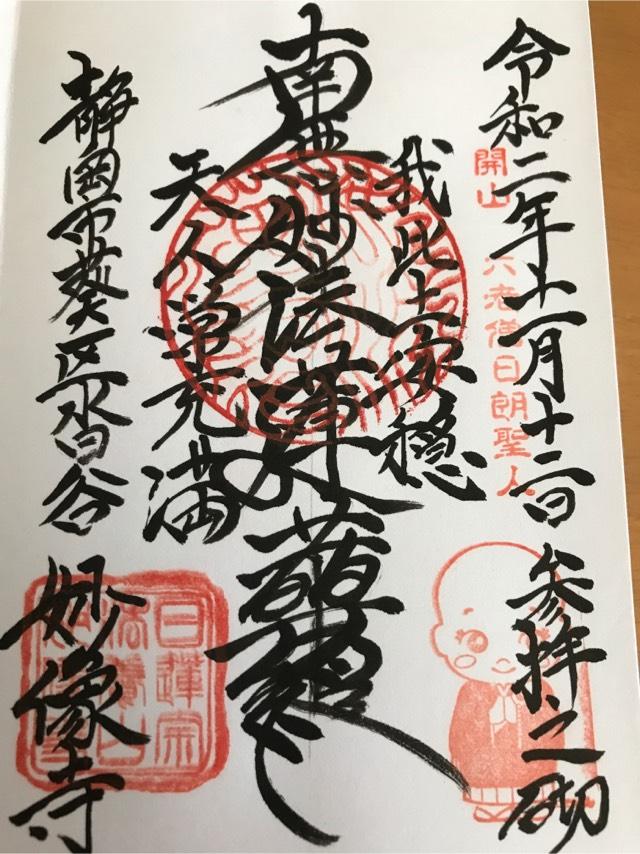 令和二年十一月十二日 参拝之砌
開山 六老僧日朗聖人
我此土安穏
南無妙法蓮華経
天人常充満
静岡市葵区沓谷
妙像寺
日蓮宗